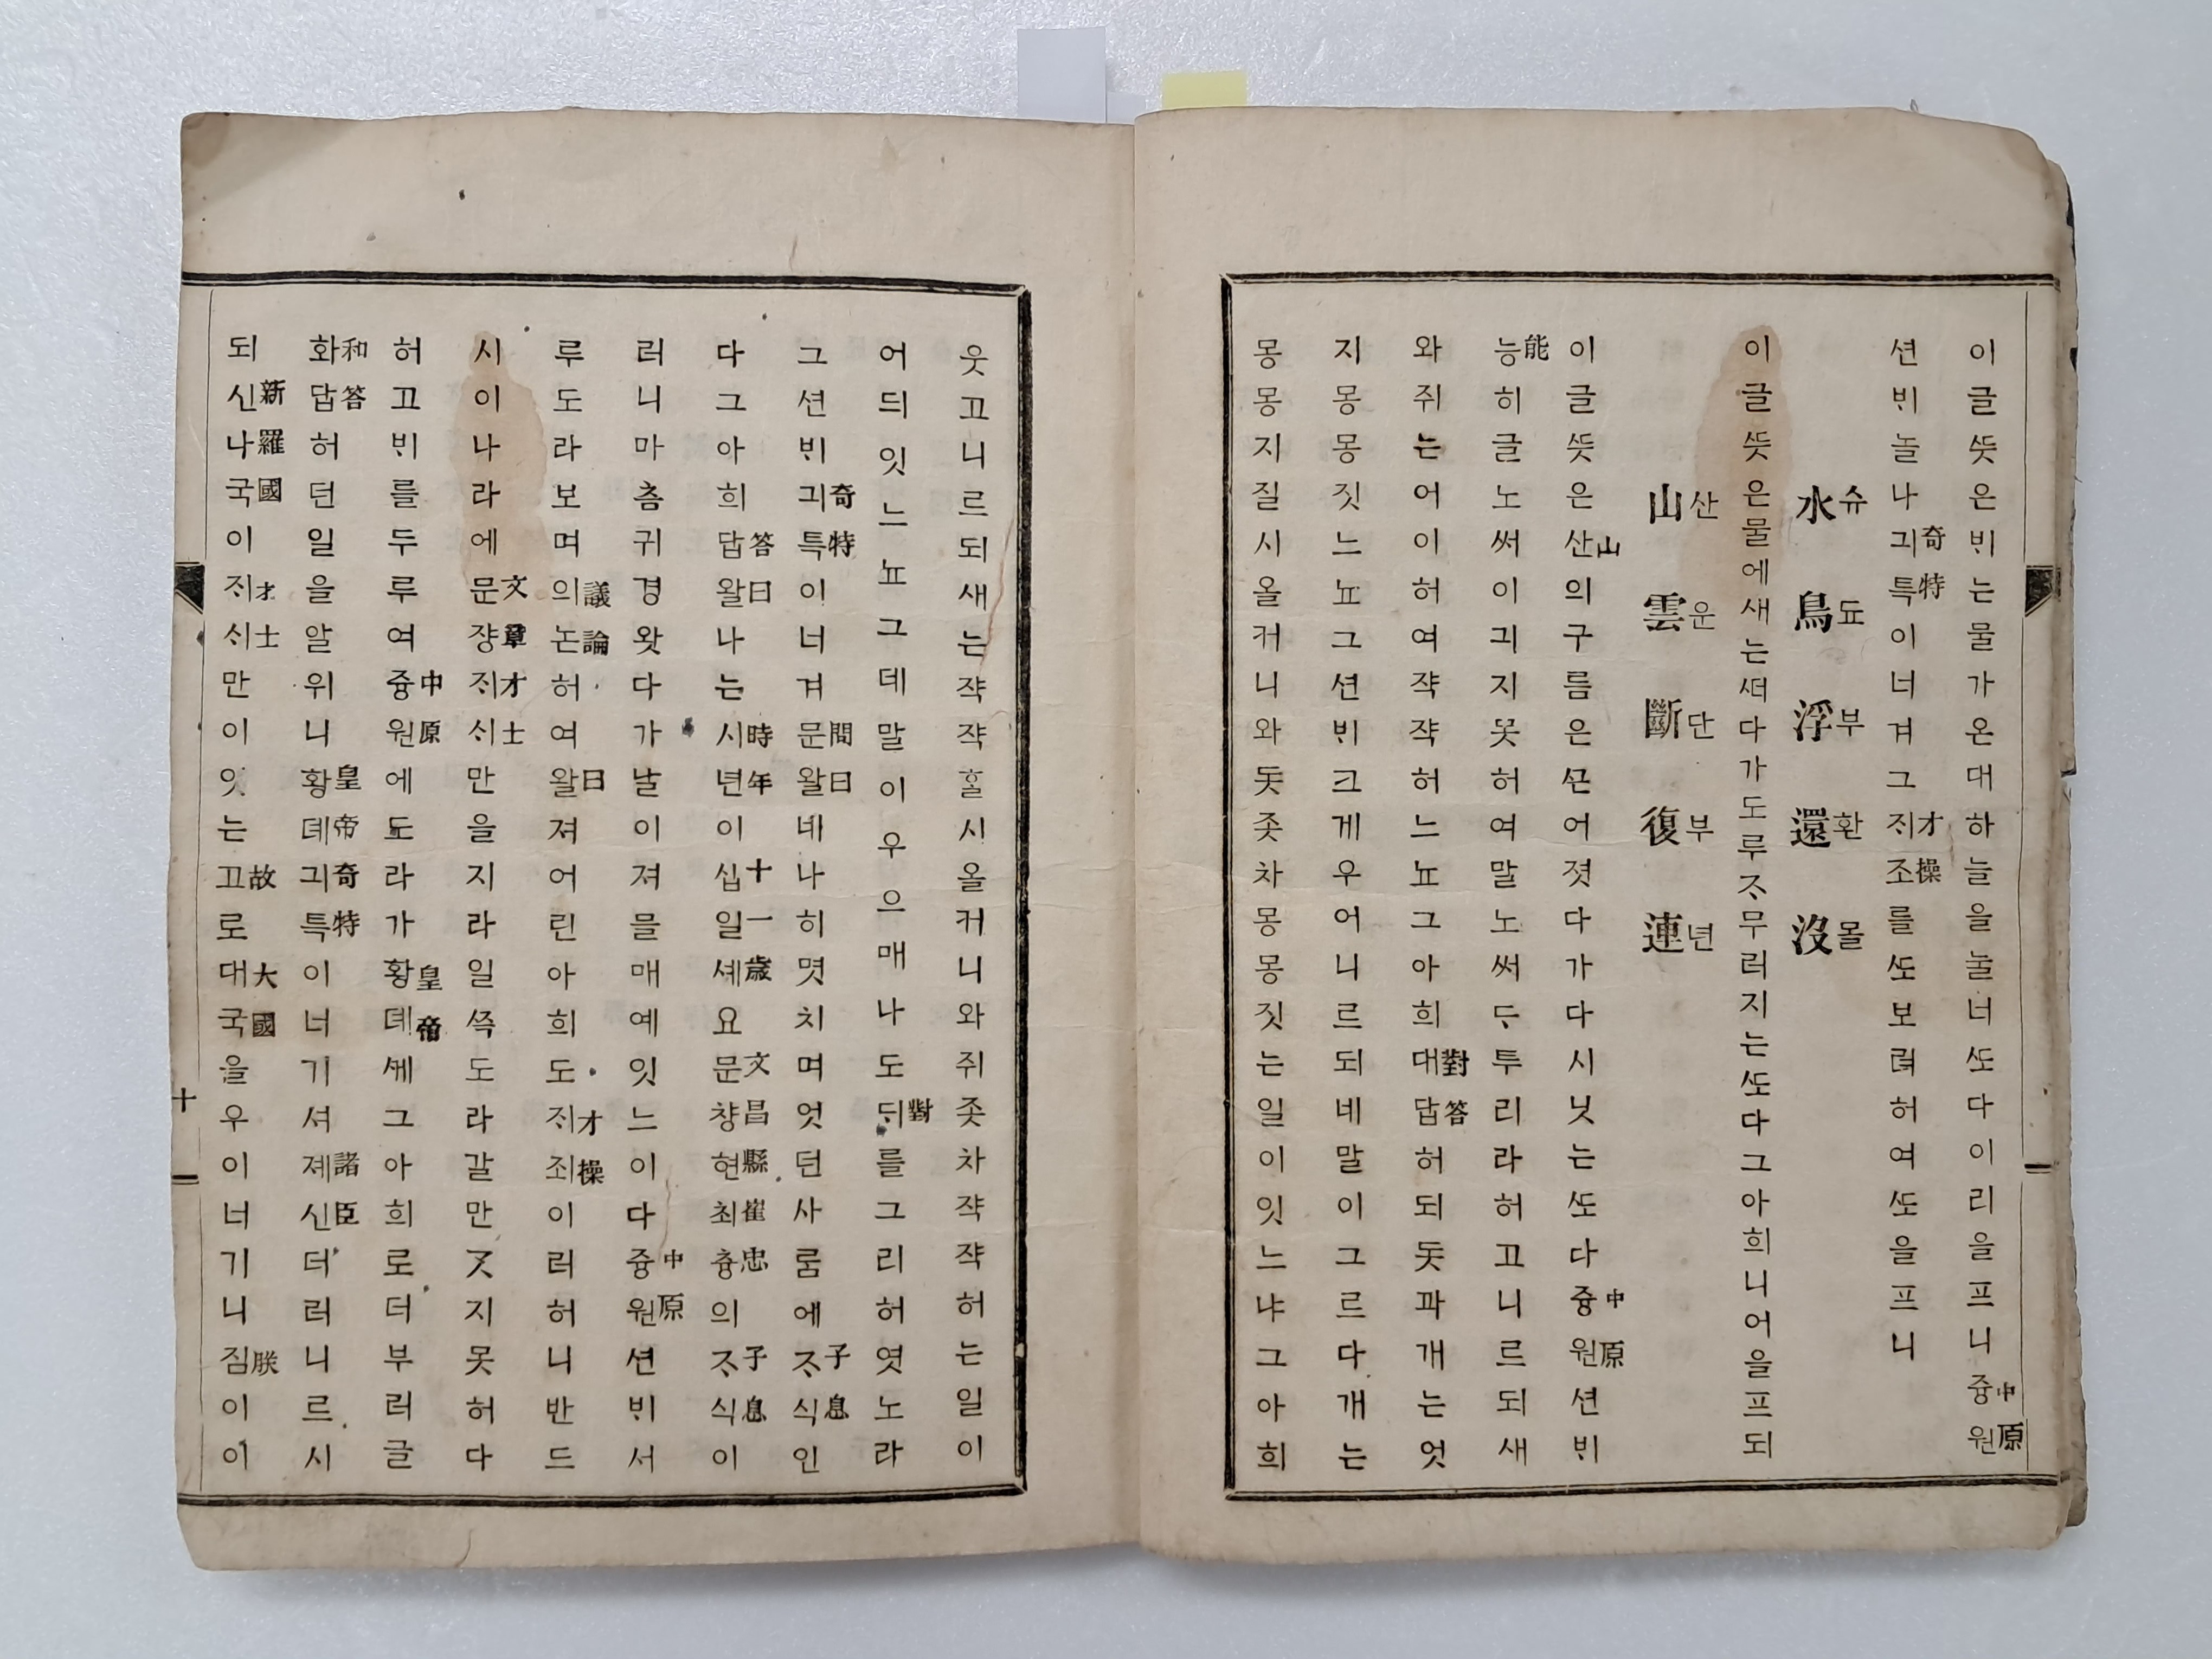 이글ᄯᅳᆺ은ᄇᆡ는물가온대하늘을눌너ᄯᅩ다이리을프니즁中원原
션ᄇᆡ놀나긔奇특特이너겨그ᄌᆡ才조操를ᄯᅩ보려허여ᄯᅩ을프니
水슈鳥됴浮부還환沒몰
이글ᄯᅳᆺ은물에새는ᄯᅥ다가도루ᄌᆞ무러지는ᄯᅩ다그아희니어을프되
山산雲운斷단復부連년
이글ᄯᅳᆺ은산山의구름은ᄭᅳᆫ어젓다가다시닛는ᄯᅩ다즁中원原션ᄇᆡ
능能히글노써이긔지못허여말노써ᄃᆞ투리라허고니르되새
와쥐는어이허여쟉쟉허느뇨그아희대對답答허되돗과개는엇
지몽몽짓느뇨그션ᄇᆡ크게우어니르되네말이그르다개는
몽몽지질시올커니와돗좃차몽몽짓는일이잇느냐그아희
웃고니르되새는쟉쟉홀시올커니와쥐좃차쟉쟉허는일이
어듸잇느뇨그데말이우으매나도ᄃᆡ對를그리허엿노라
그션ᄇᆡ긔奇특特이너겨문問왈曰네나히몃치며엇던사룸에ᄌᆞ子식息인
다그아희답答왈曰나는시時년年이십十일一셰歲요문文챵昌현縣최崔츙忠의ᄌᆞ子식息이
러니마춤귀경왓다가날이져믈매예잇느이다즁中원原션ᄇᆡ서
루도라보며의議논論허여왈曰져어린아희도ᄌᆡ才죄操이러허니반드
시이나라에문文쟝章ᄌᆡ才ᄉᆡ士만을지라일ᄶᅳᆨ도라갈만ᄀᆞᆺ지못허다
허고ᄇᆡ를두루여즁中원原에도라가황皇뎨帝ᄭᅦ그아희로더부러글
화和답答허던일을알위니황皇뎨帝긔奇특特이너기셔졔諸신臣더러니르시
되신新나羅국國이ᄌᆡ才ᄉᆡ士만이잇는고故로대大국國을우이너기니짐朕이이
十一